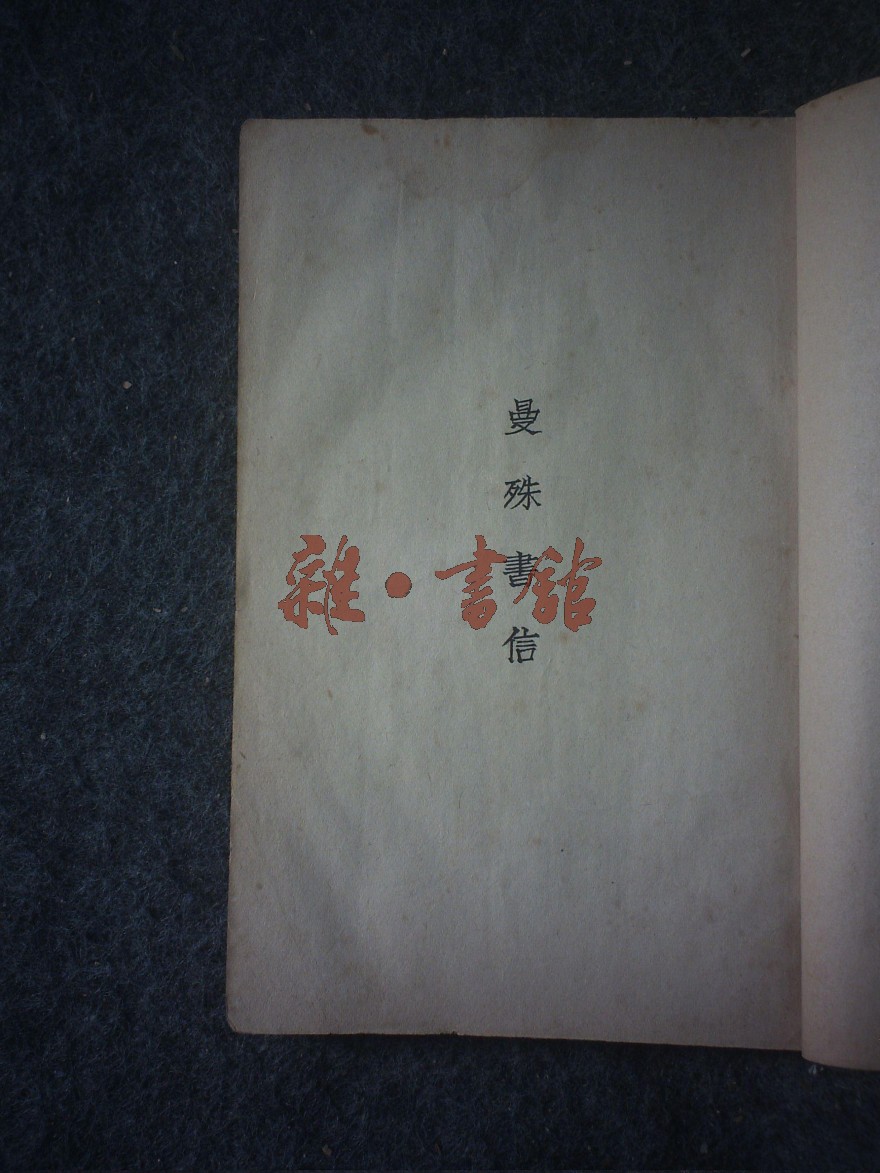 曼殊書信
雜·書館